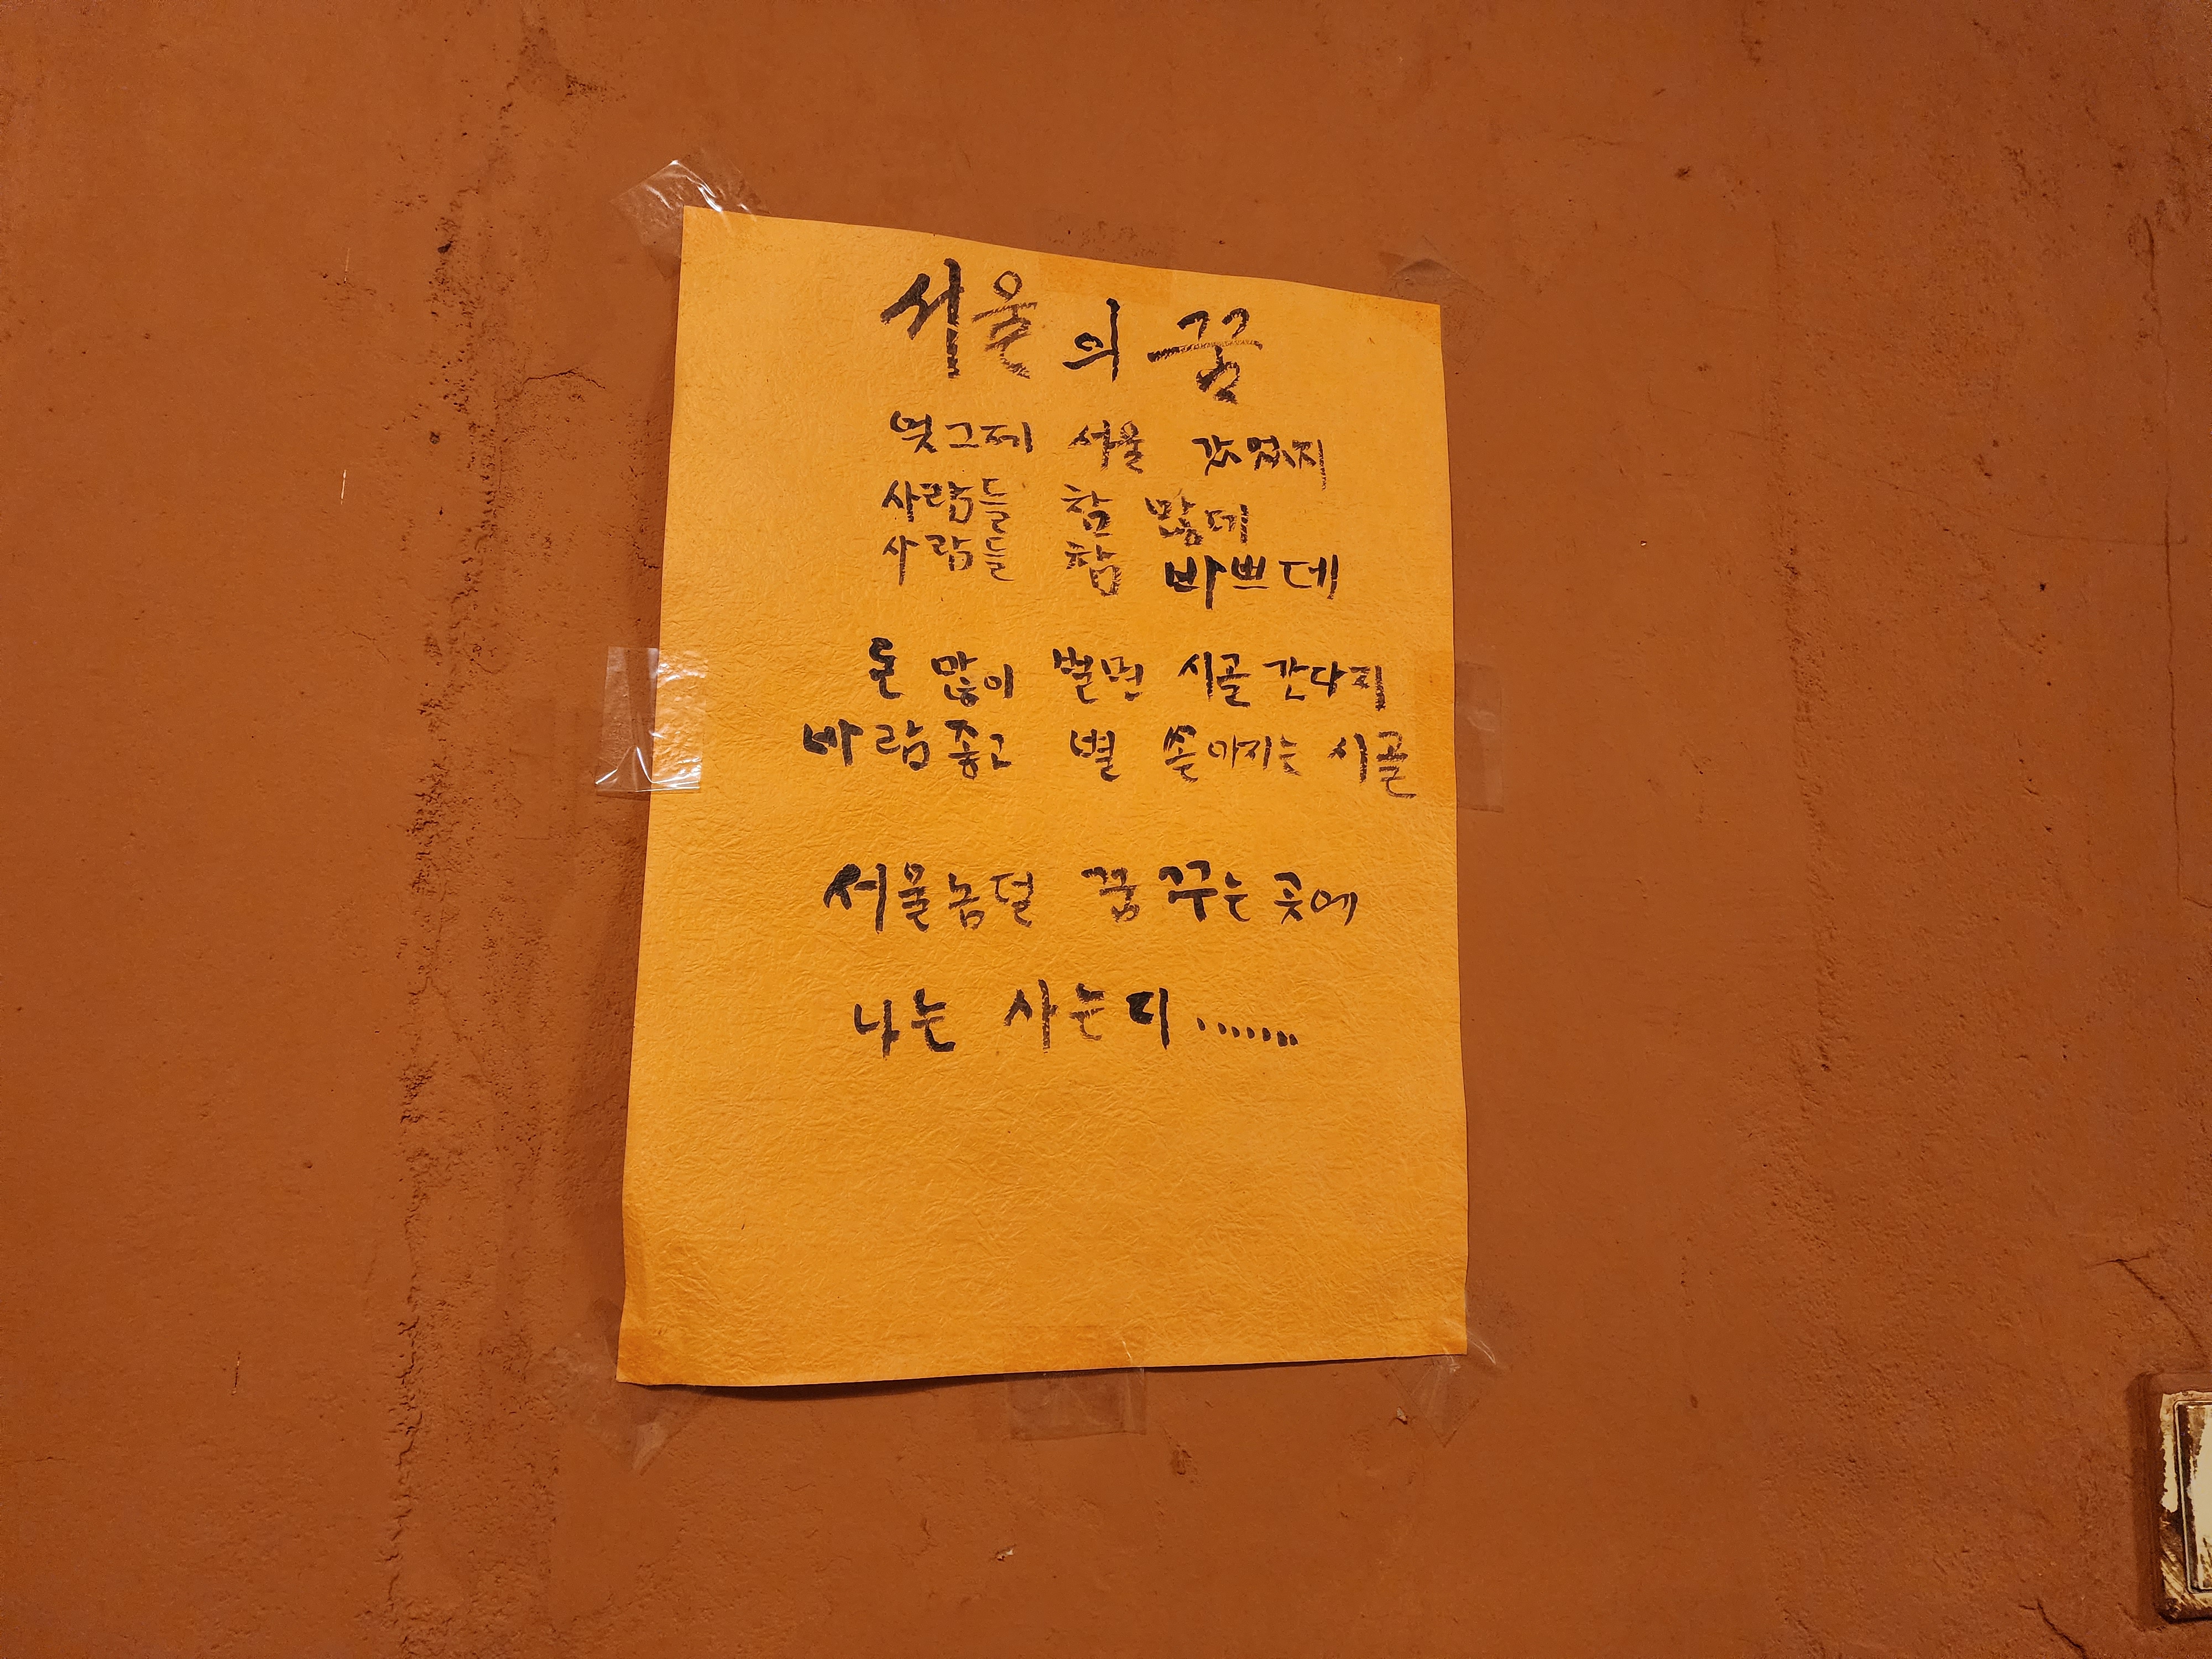 서울의 꿈
엊그제 서울 갔었지
사람들 참 많데
사람들 참 바쁘데
돈 많이 벌면 시골 간다지
바람 좋고 별 쏟아지는 시골
서울놈덜 꿈 꾸는 곳에
나는 사는디.......